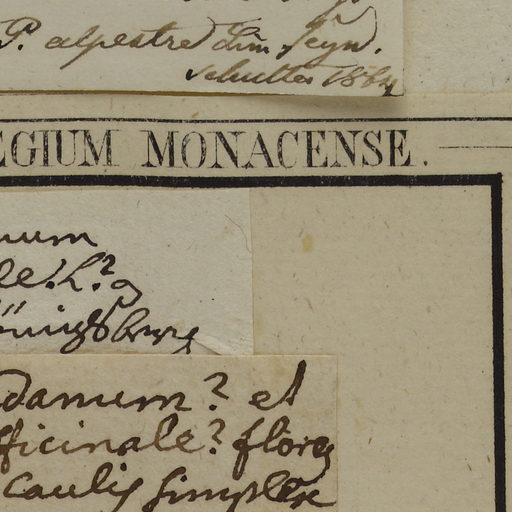 P. alpestre Lin. Syn.
Schultes 1864
EGIUM MONACENSE.
num
le. L.?
önigsberg
danum? et
fficinale? flores
caulis simplex